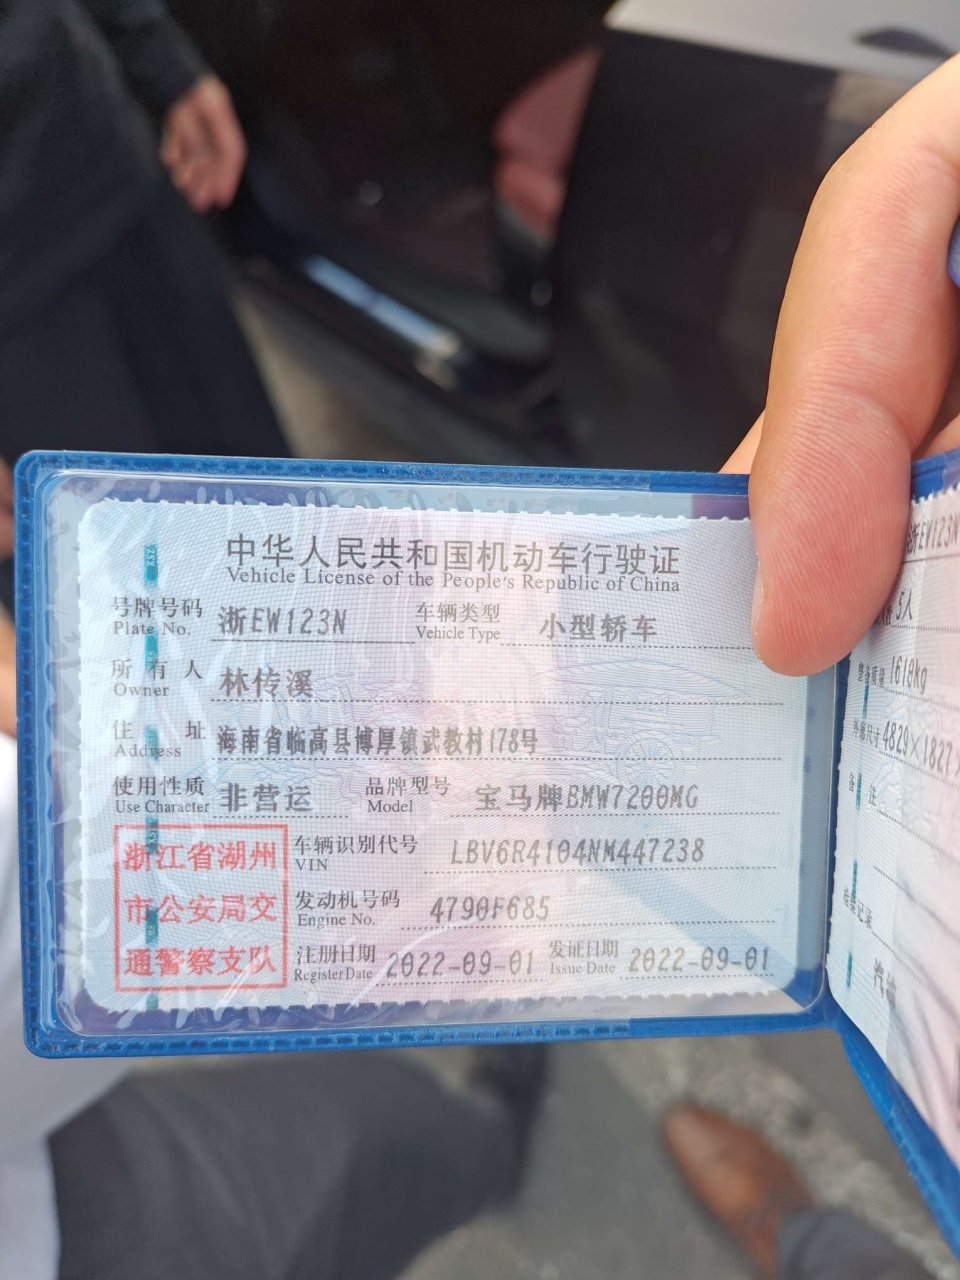 中华人民共和国机动车行驶证
Vehicle License of the People's Republic of China
号牌号码 浙EW123N 车辆类型 小型轿车
Plate No. Vehicle Type
所有人 林传溪
Owner
住址 海南省临高县博厚镇武教村178号
Address
使用性质 非营运 品牌型号 宝马牌BMW7200MG
Use Character Model
浙江省湖州
市公安局交
通警察支队
车辆识别代号 LBV6R4104NM447238
VIN
发动机号码 4790F685
Engine No.
注册日期 2022-09-01 发证日期 2022-09-01
Register Date Issue Date
浙EW123N
5人
整备质量 1610kg
外廓尺寸 4829×1827×
备注
检验记录